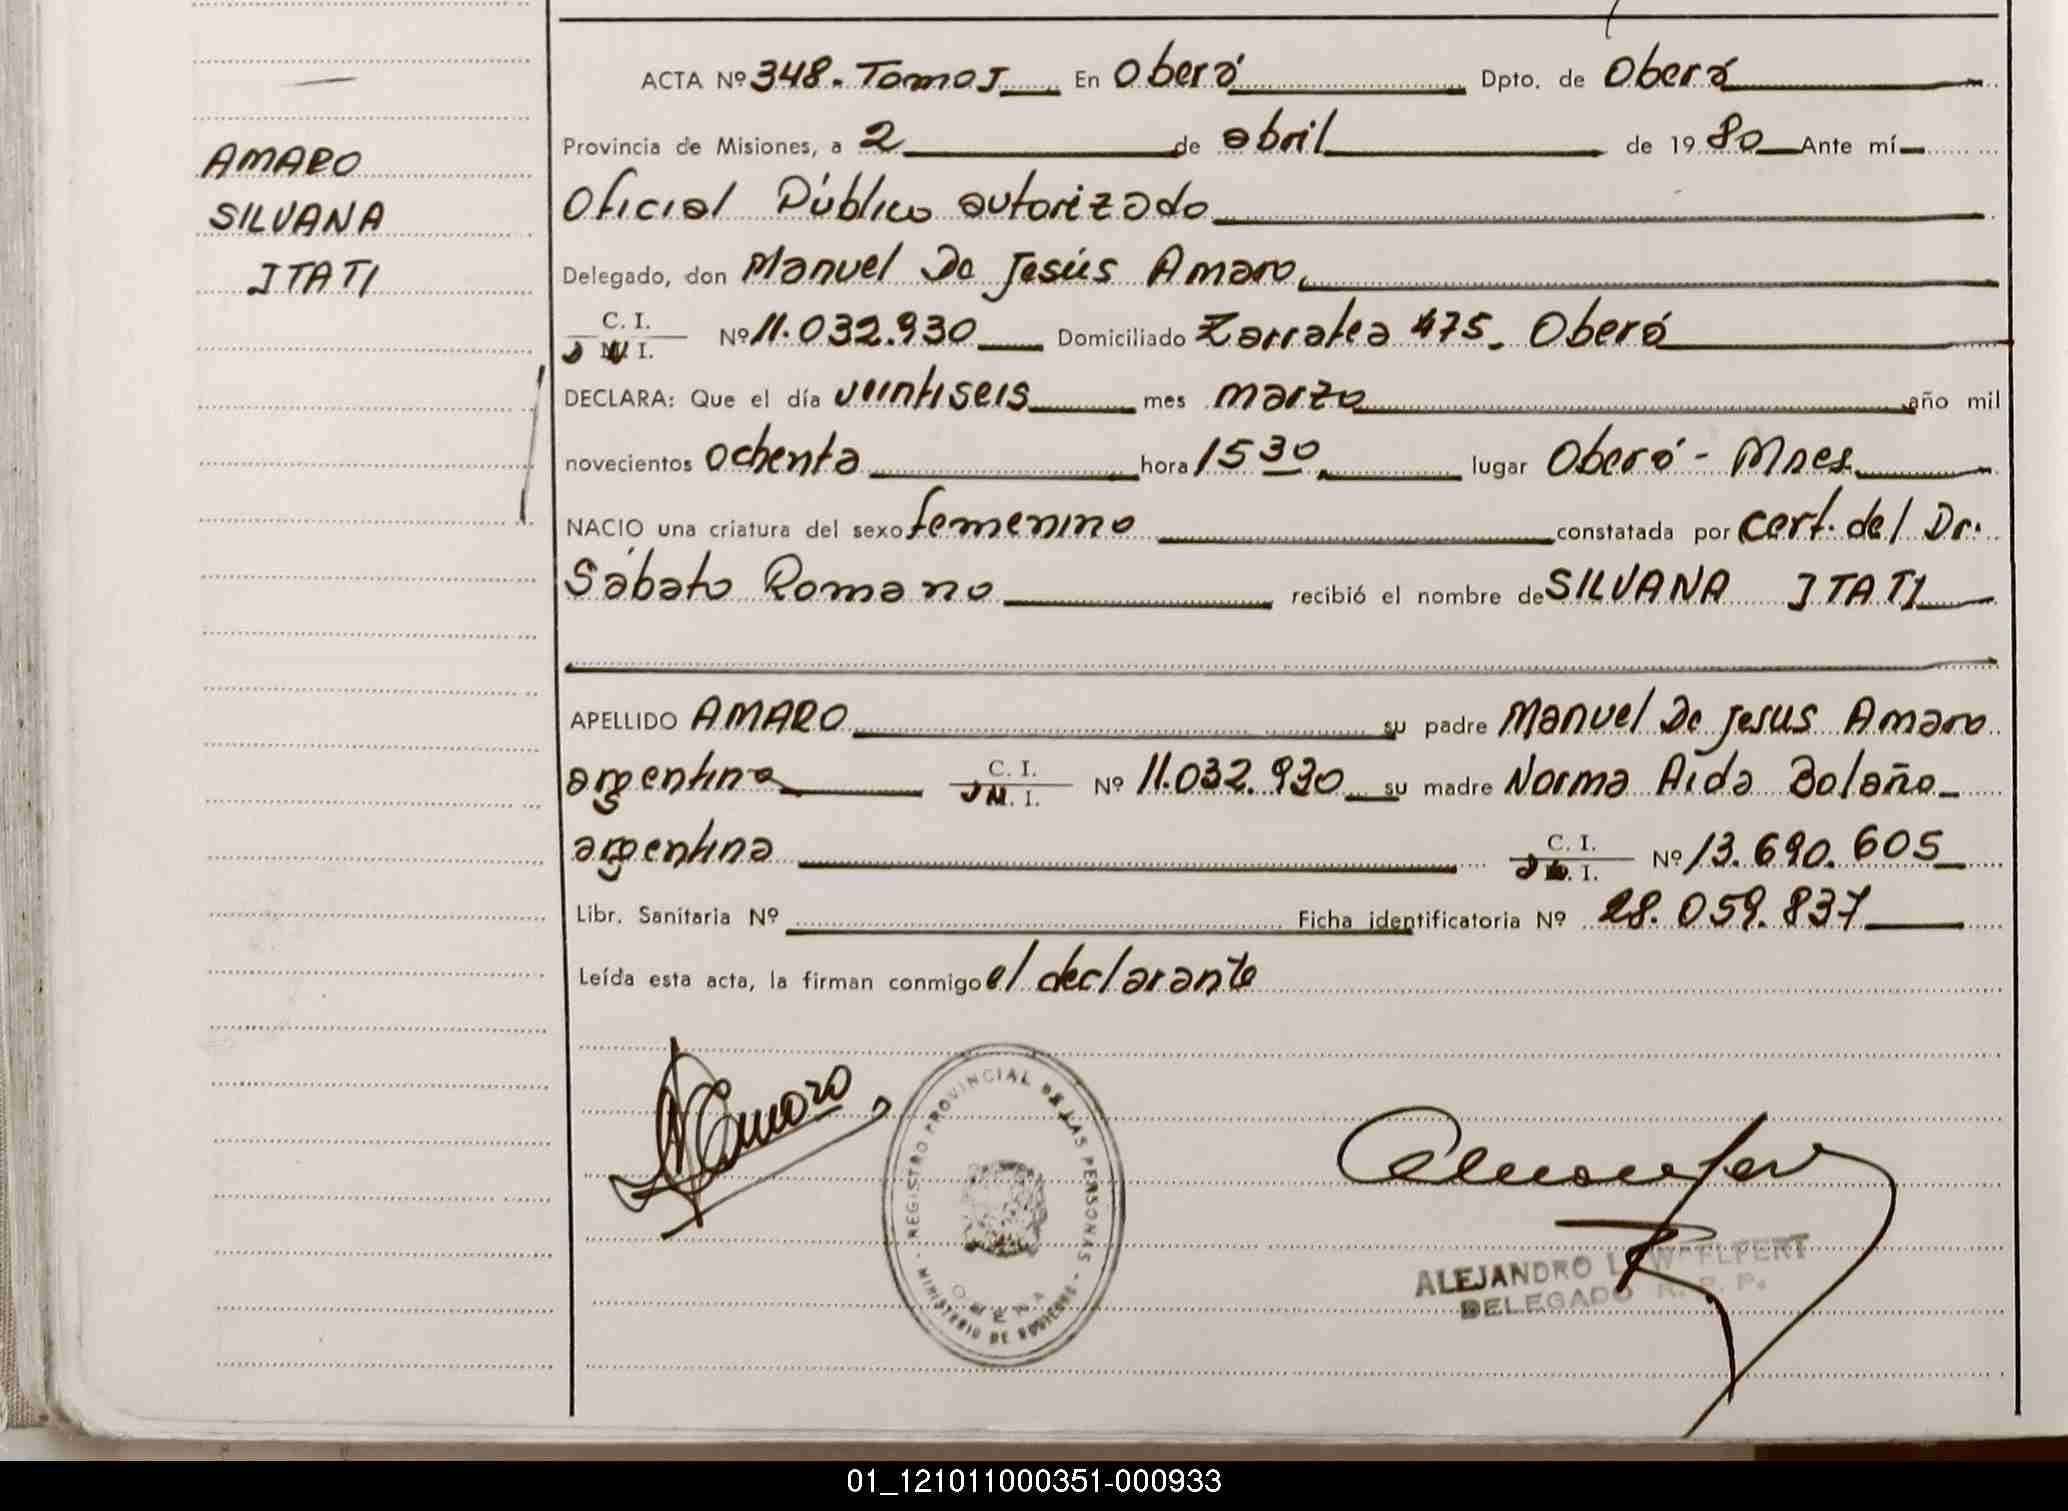 AMARO
SILVANA
ITATI
ACTA Nº 348. Tomo I En Oberá Dpto. de Oberá
Provincia de Misiones, a 2 de abril de 1980 Ante mí
Oficial Público autorizado
Delegado, don Manuel De Jesús Amaro,
C. I.
Nº 11.032.930 Domiciliado Zarratea 475. Oberá
I.
DECLARA: Que el día veintiseis mes marzo año mil
novecientos ochenta hora 15 30 lugar Oberá - Mnes
NACIO una criatura del sexo femenino constatada por cert. del Dr.
Sábato Romano recibió el nombre de SILVANA ITATI
APELLIDO AMARO su padre Manuel De Jesus Amaro
argentino C. I. Nº 11.032.930 su madre Norma Aída Bolaño
I.
argentina C. I. Nº 13.690.605
I.
Libr. Sanitaria Nº Ficha identificatoria Nº 28.059.837
Leída esta acta, la firman conmigo el declarante
Amaro
REGISTRO PROVINCIAL DE LAS PERSONAS
MINISTERIO DE
ALEJANDRO
DELEGADO R. P.
01_121011000351-000933